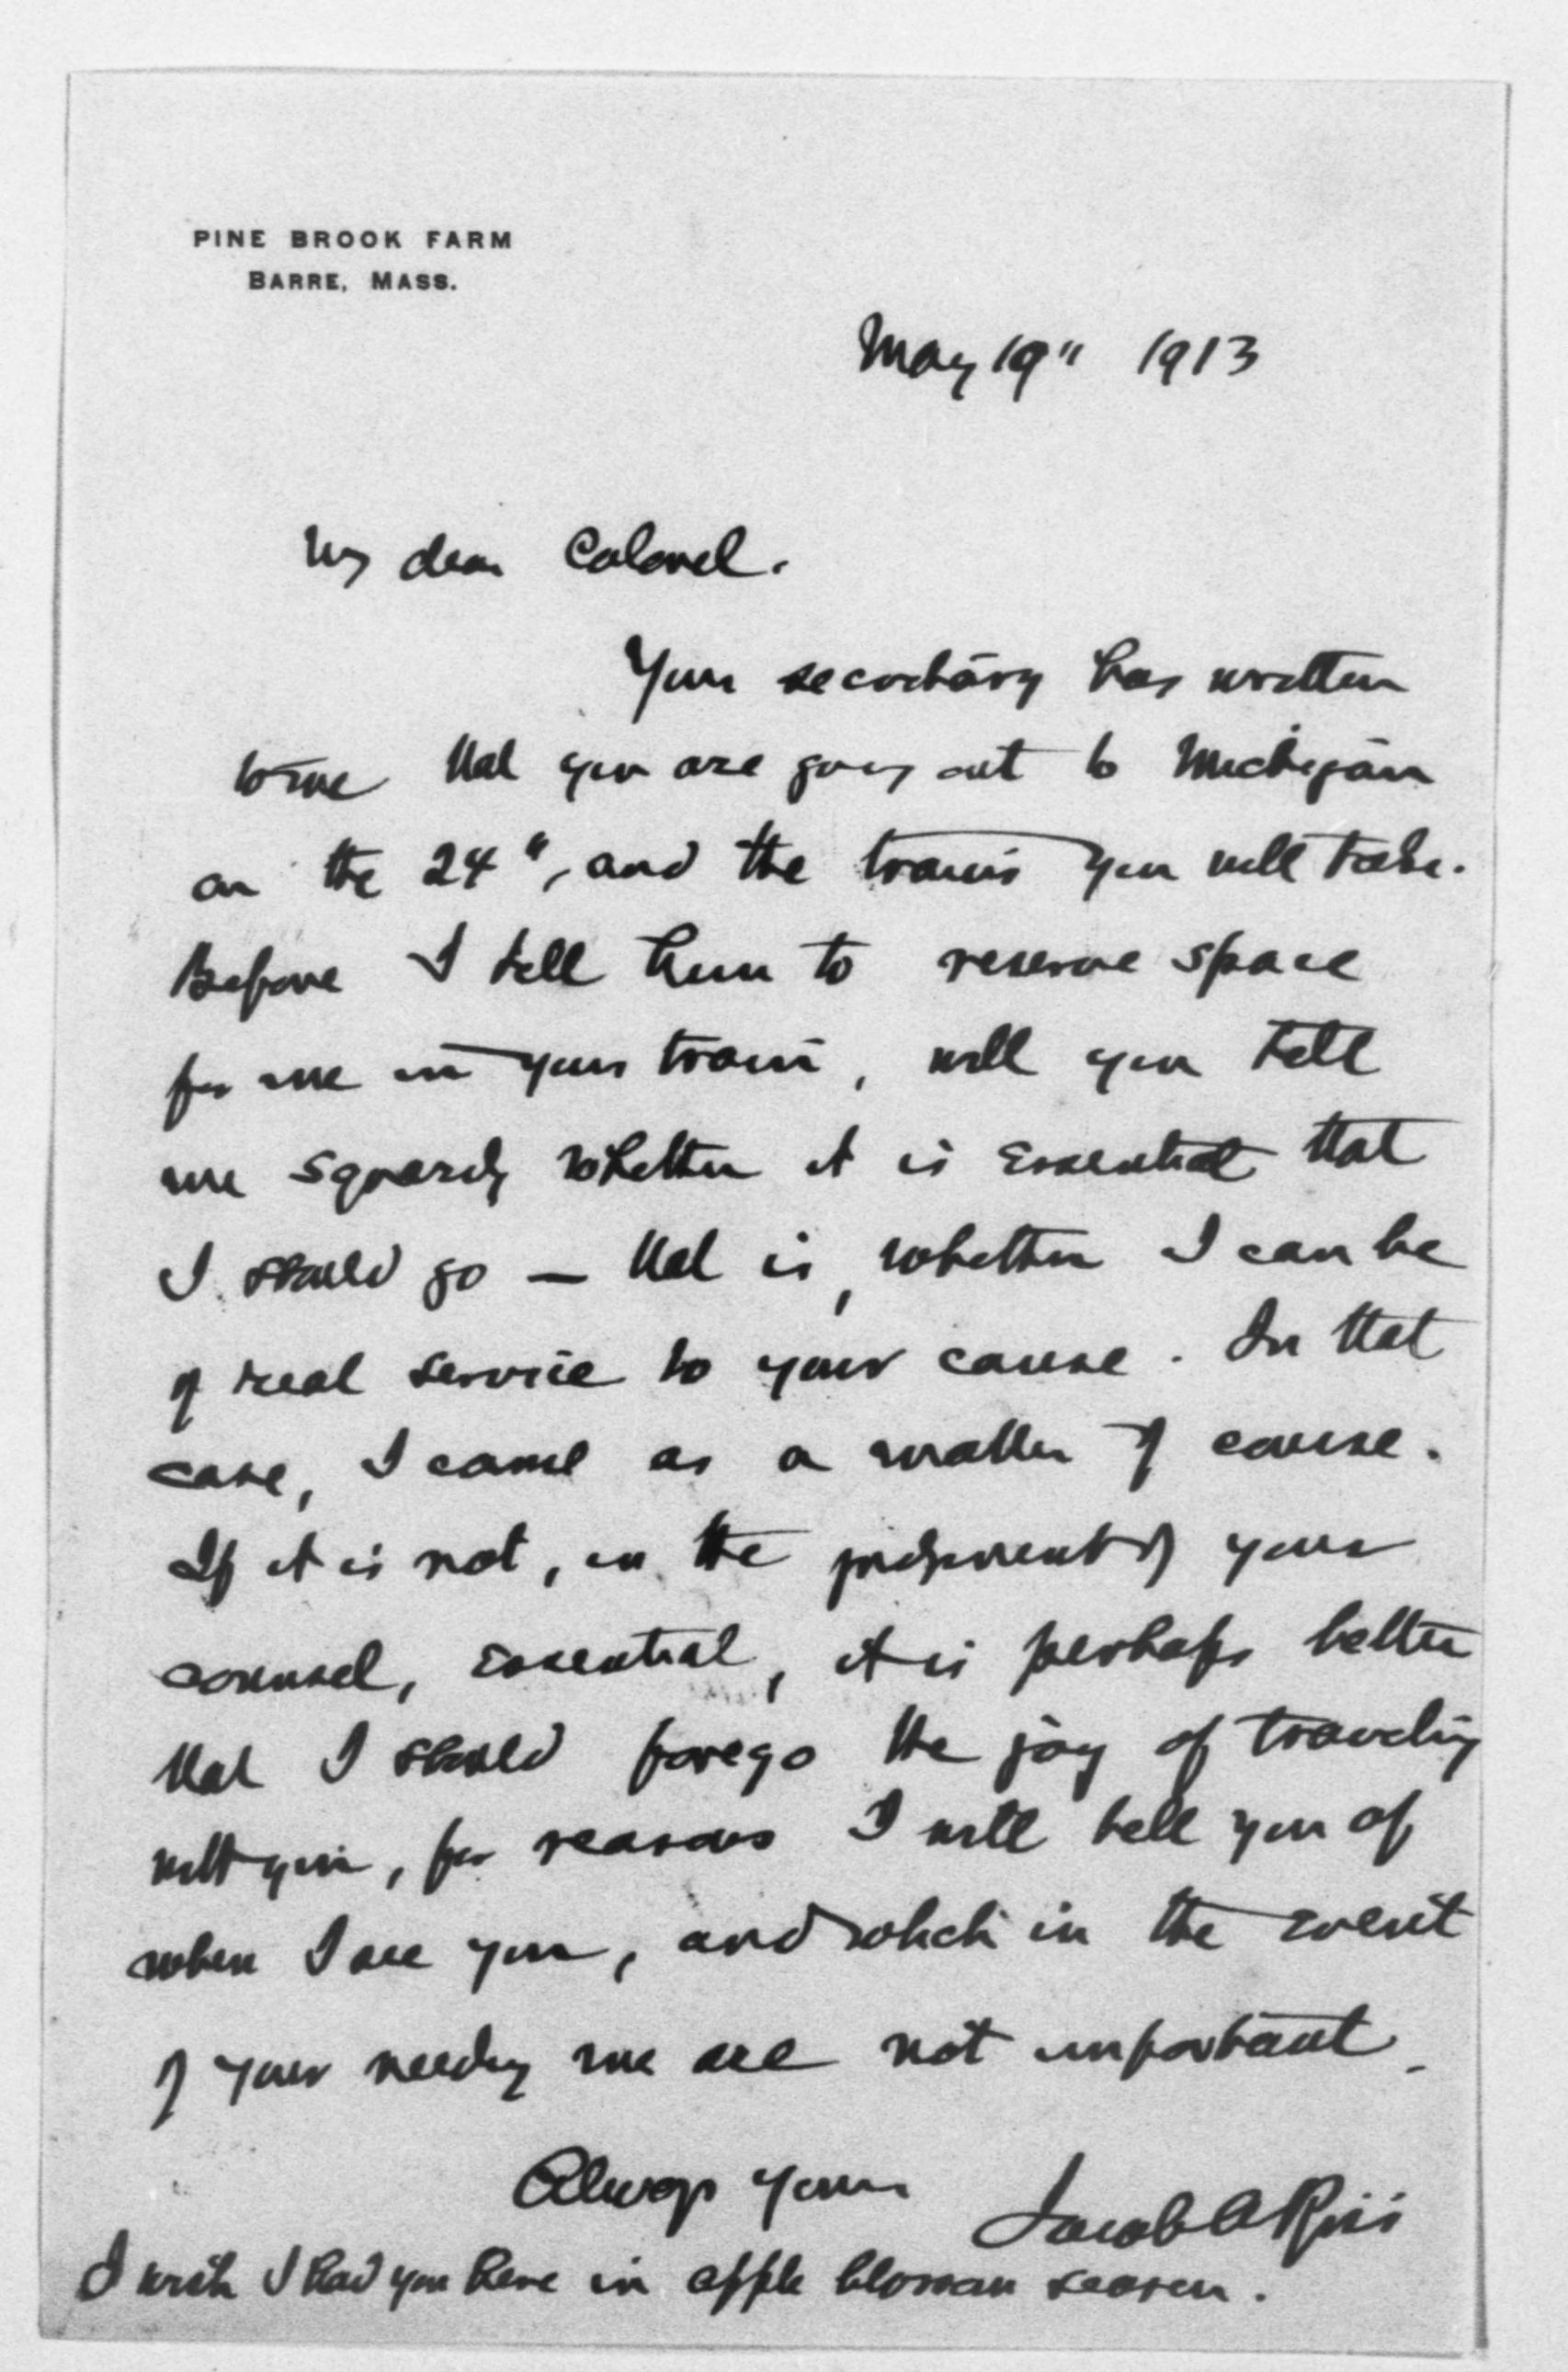 PINE BROOK FARM
BARRE, MASS.
May 19" 1913
My dear Colonel.
Your secretary has written
to me that you are going out to Michigan
on the 24", and the trains you will take.
Before I tell them to reserve space
for me in your train, will you tell
me squarely whether it is essential that
I should go — that is, whether I can be
of real service to your cause. In that
case, I come as a matter of course.
If it is not, in the judgment of your
counsel, essential, it is perhaps better
that I should forego the joy of traveling
with you, for reasons I will tell you of
when I see you, and which in the event
of your needing me are not important.
Always yours Jacob A Riis
I wish I had you here in apple blossom season.